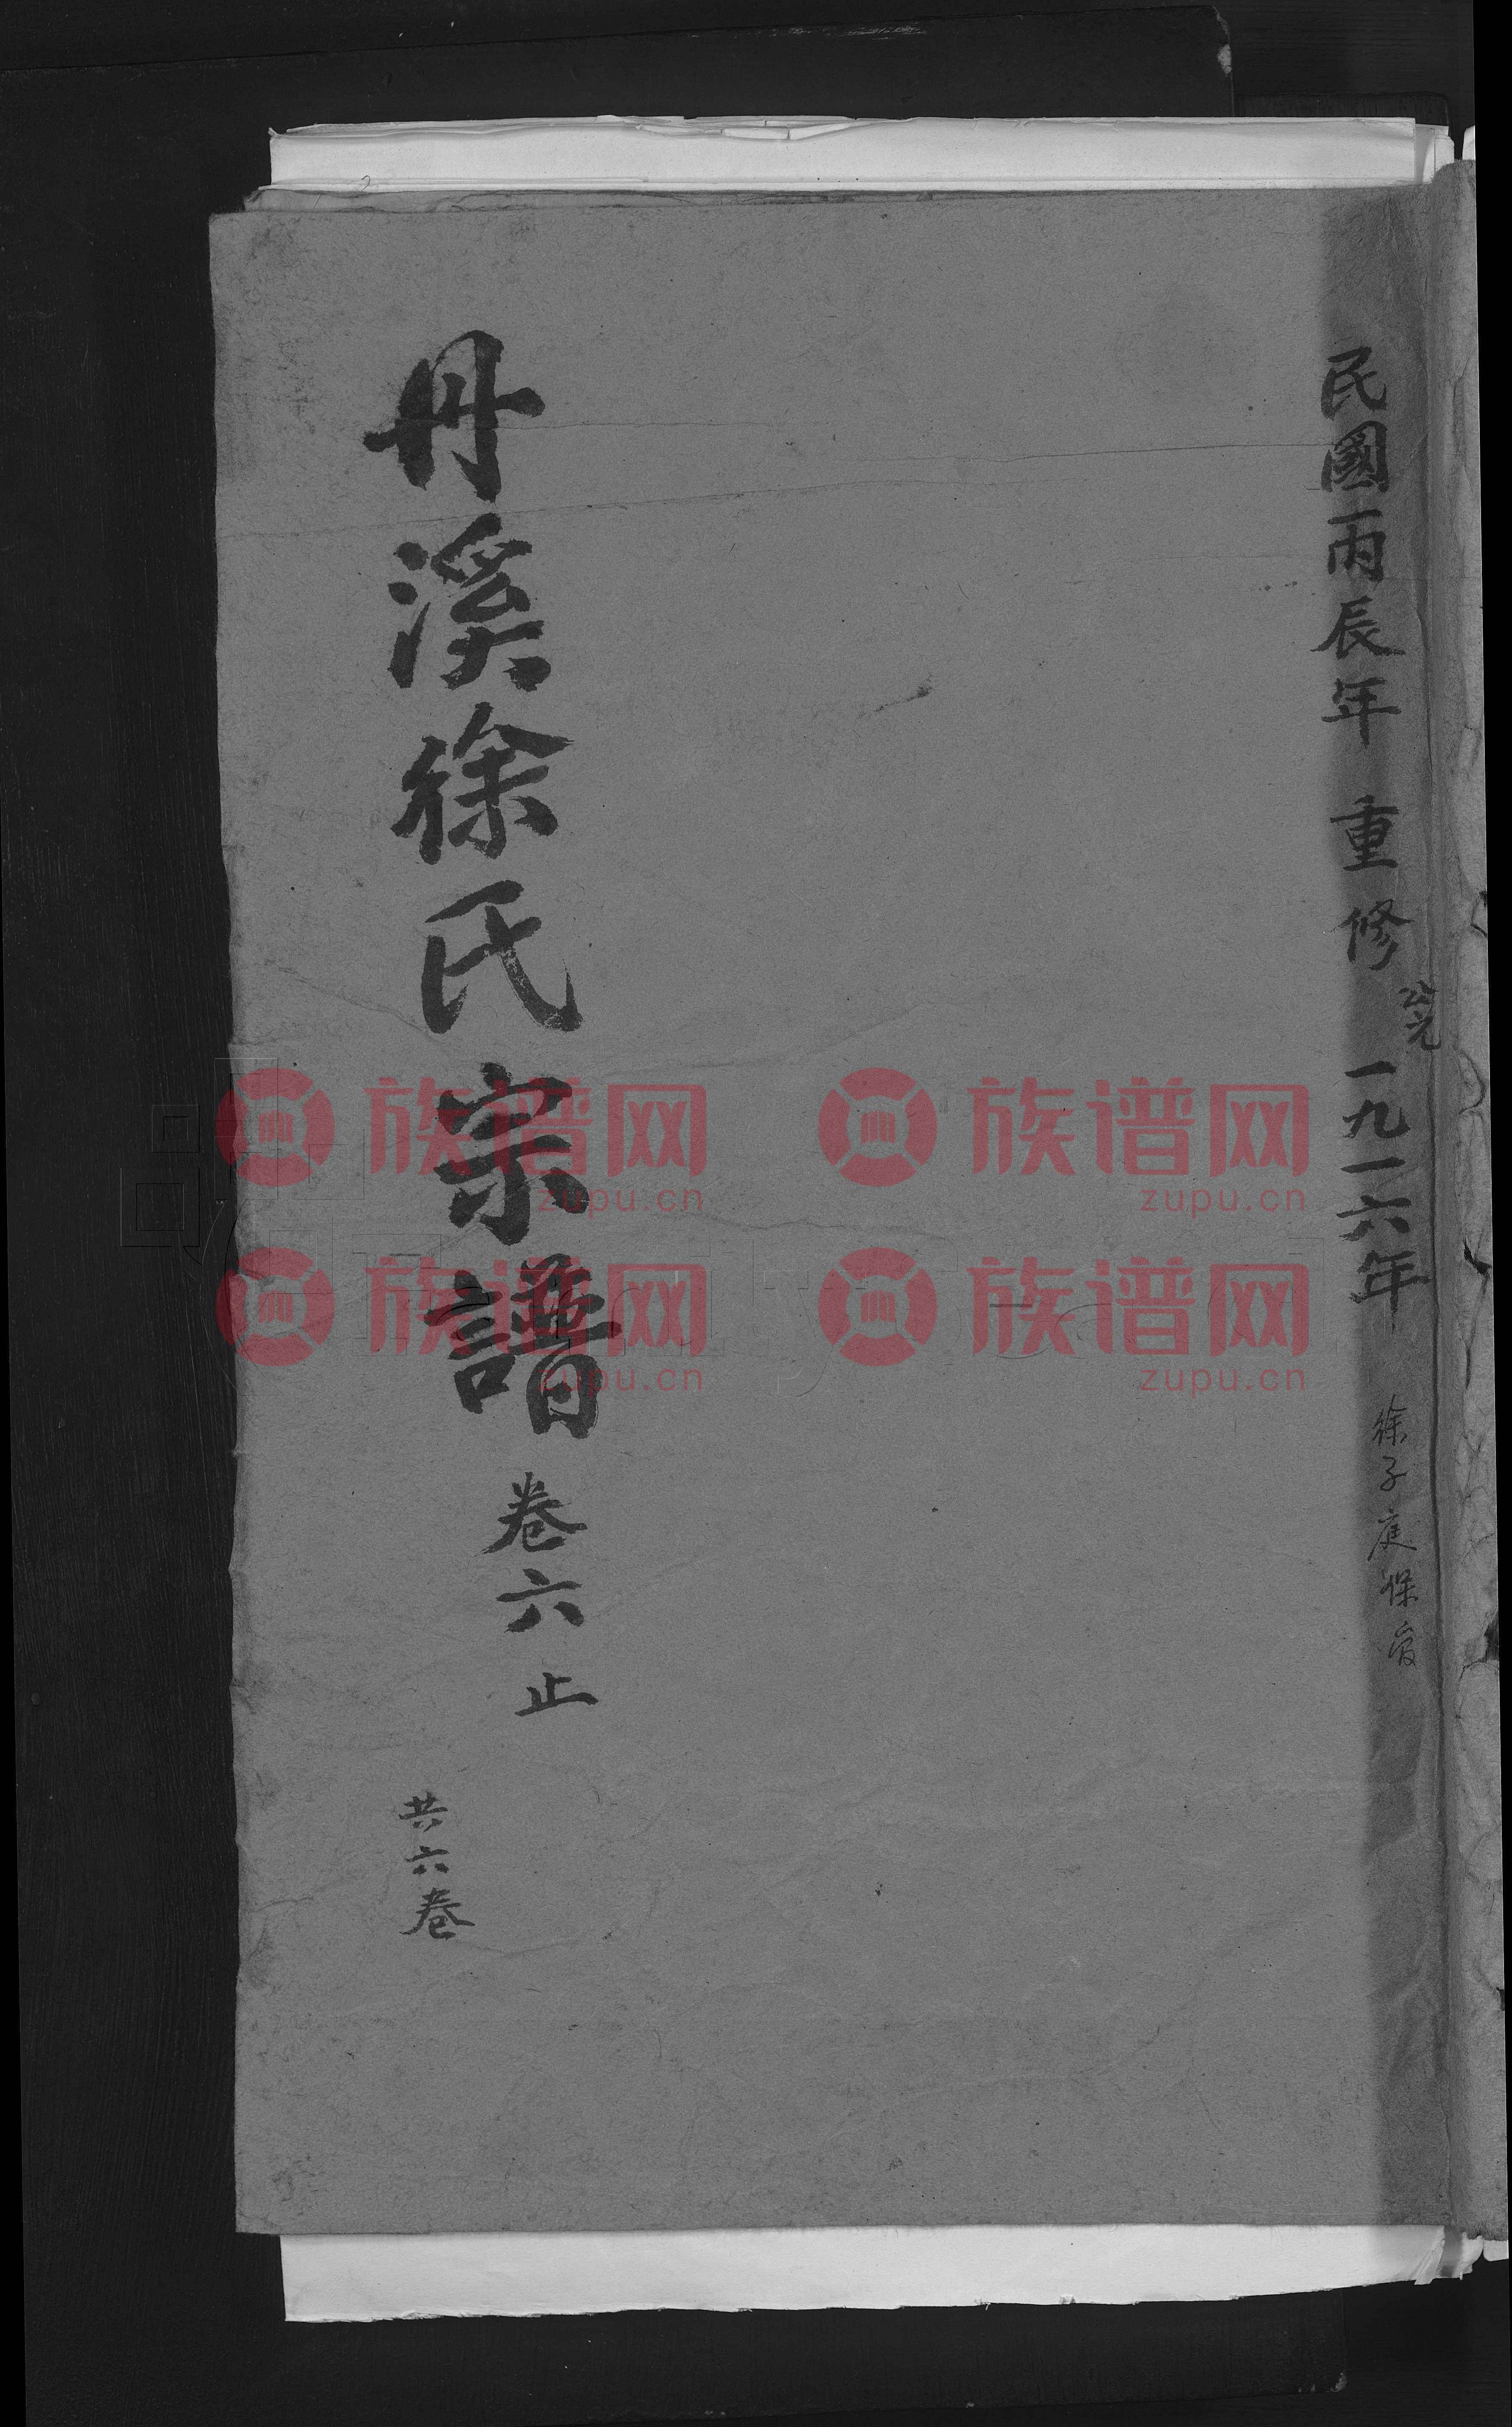 民國丙辰年 重修 公元 一九一六年 徐子庭保留
丹溪徐氏宗譜 卷六 止
共六卷
族谱网 族谱网
zupu.cn zupu.cn
族谱网 族谱网
zupu.cn zupu.cn